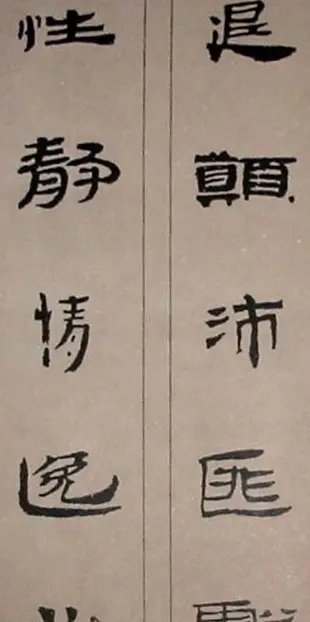 退顛沛匪
性靜情逸